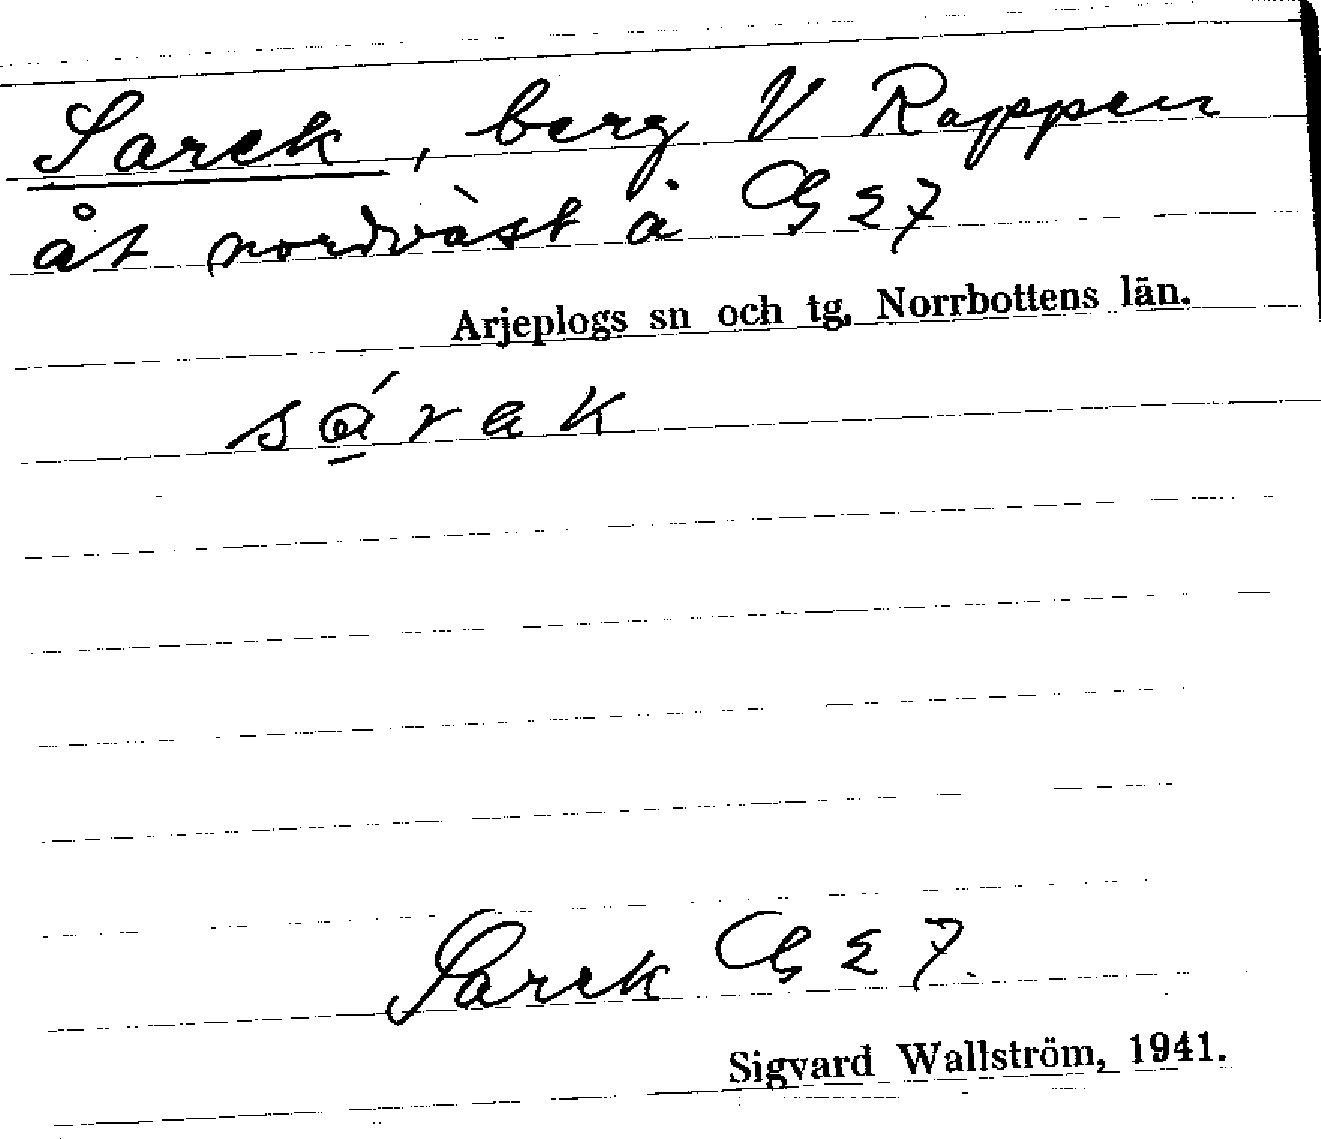 Sarek, berg V Rappen
åt nordväst å G Ekb
Arjeplogs sn och tg, Norrbottens län.
sárak
Sarek
Sigvard Wallström, 1941.